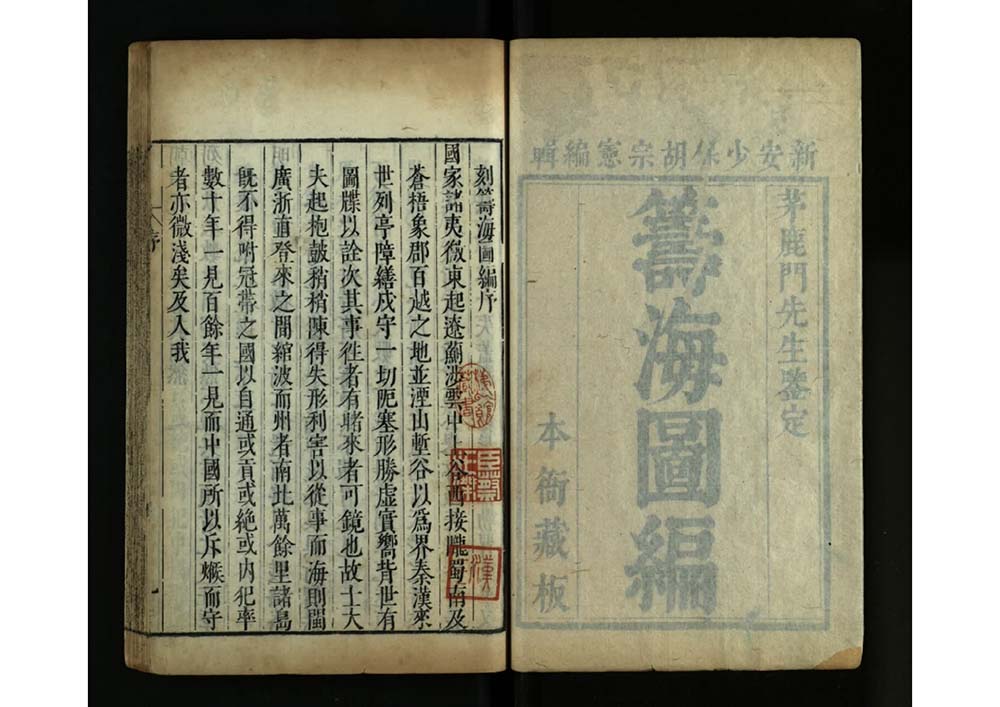 新安少保胡宗憲編輯
茅鹿門先生鑒定
籌海圖編
本衙藏板
刻籌海圖編序
國家諸夷徼東起遼薊涉雲中上谷西接隴蜀南及
蒼梧象郡百越之地並湮山塹谷以爲界秦漢來
世列亭障繕戍守一切阨塞形勝虛實嚮背世有
圖牒以詮次其事徃者有睹來者可鏡也故士大
夫起抱鼓稍稍陳得失形利害以從事而海則閩
廣浙直登來之間綰波而州者南北萬餘里諸島
旣不得咐冠帶之國以自通或貢或絶或內犯率
數十年一見百餘年一見而中國所以斥堠而守
者亦微淺矣及入我
序
漢